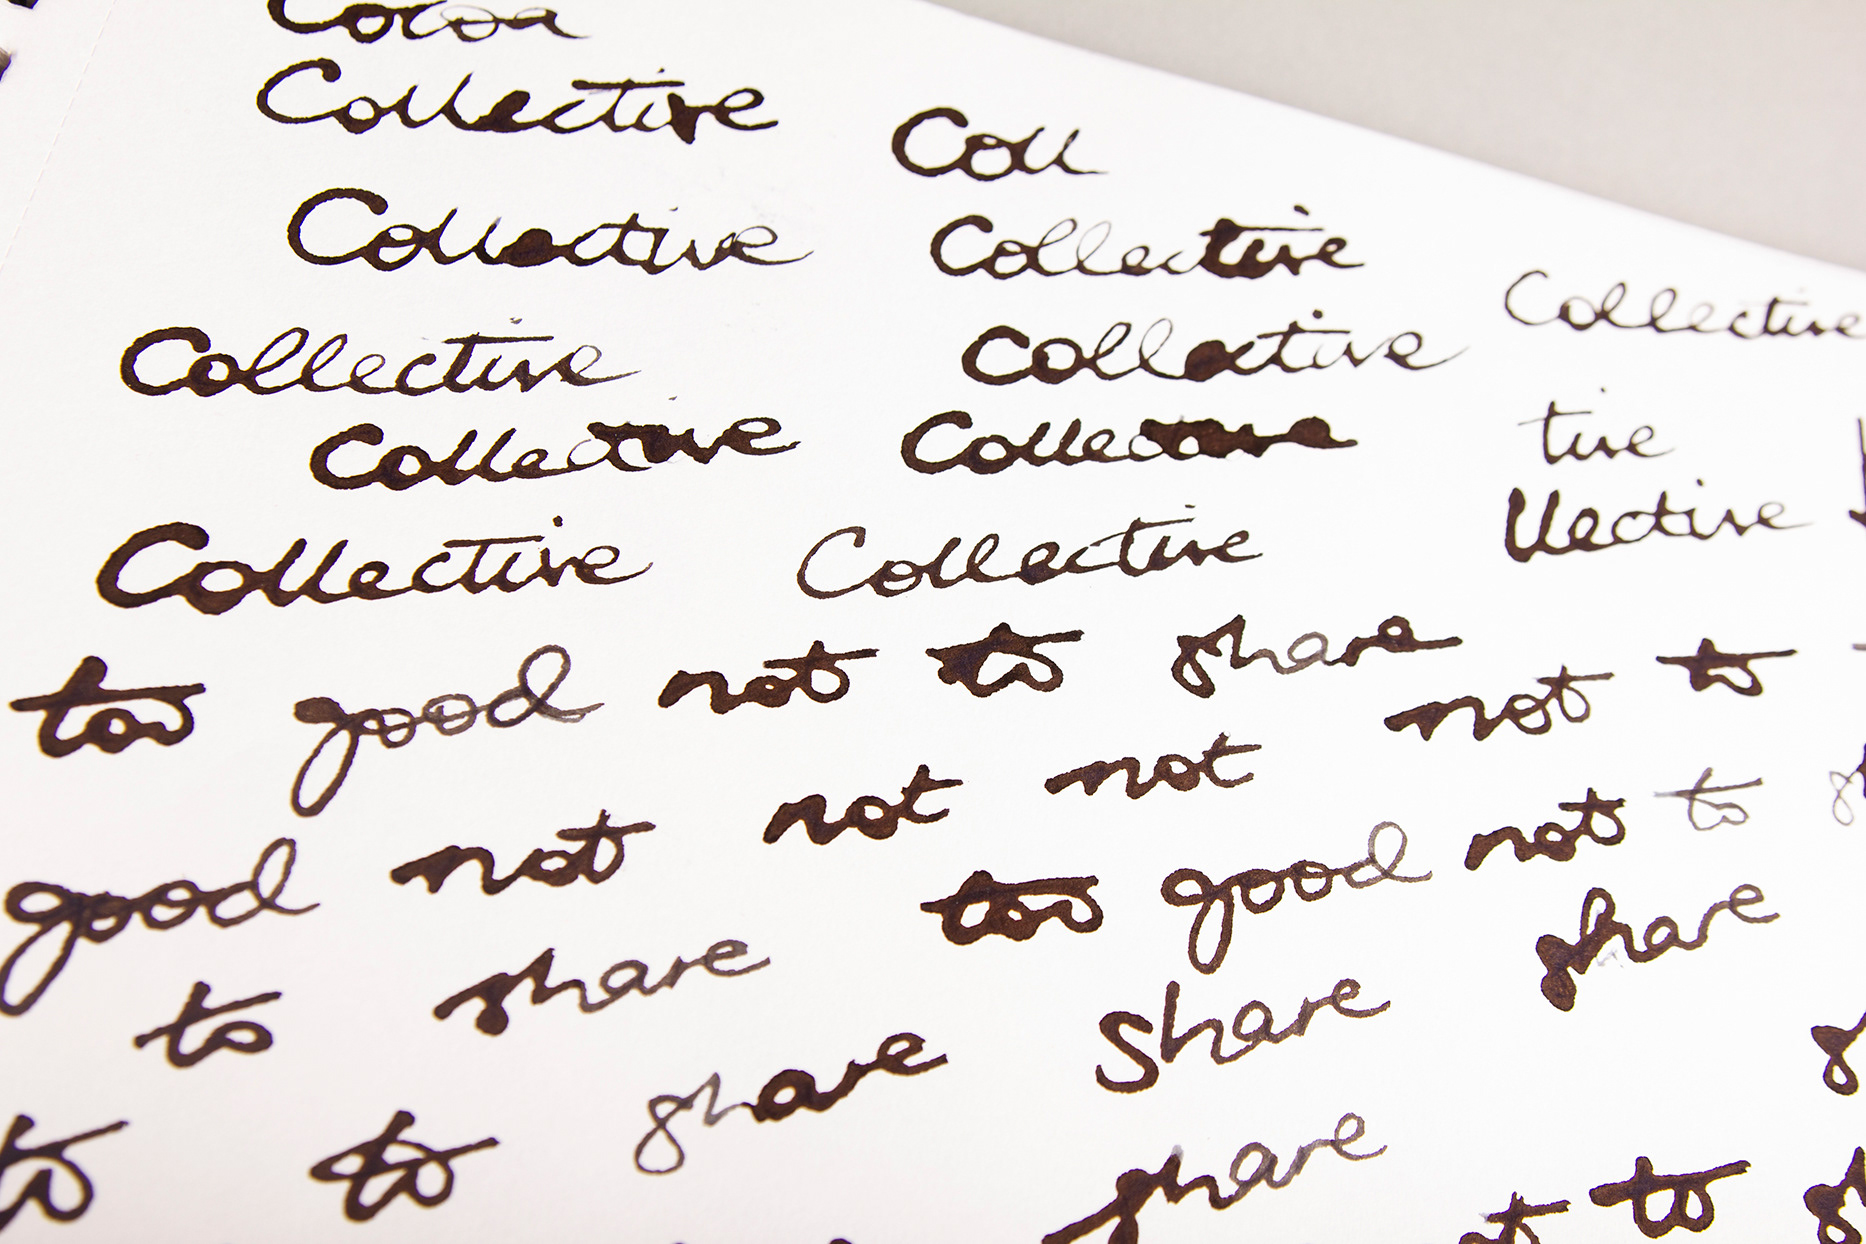 Cocoa
Collective Coll
Collective Collective Collective
Collective Collective tive
Collective Collective llective
Collective Collective
too good not to share
not to
not not
good not too good not to
to share share
share Share
to to share
to